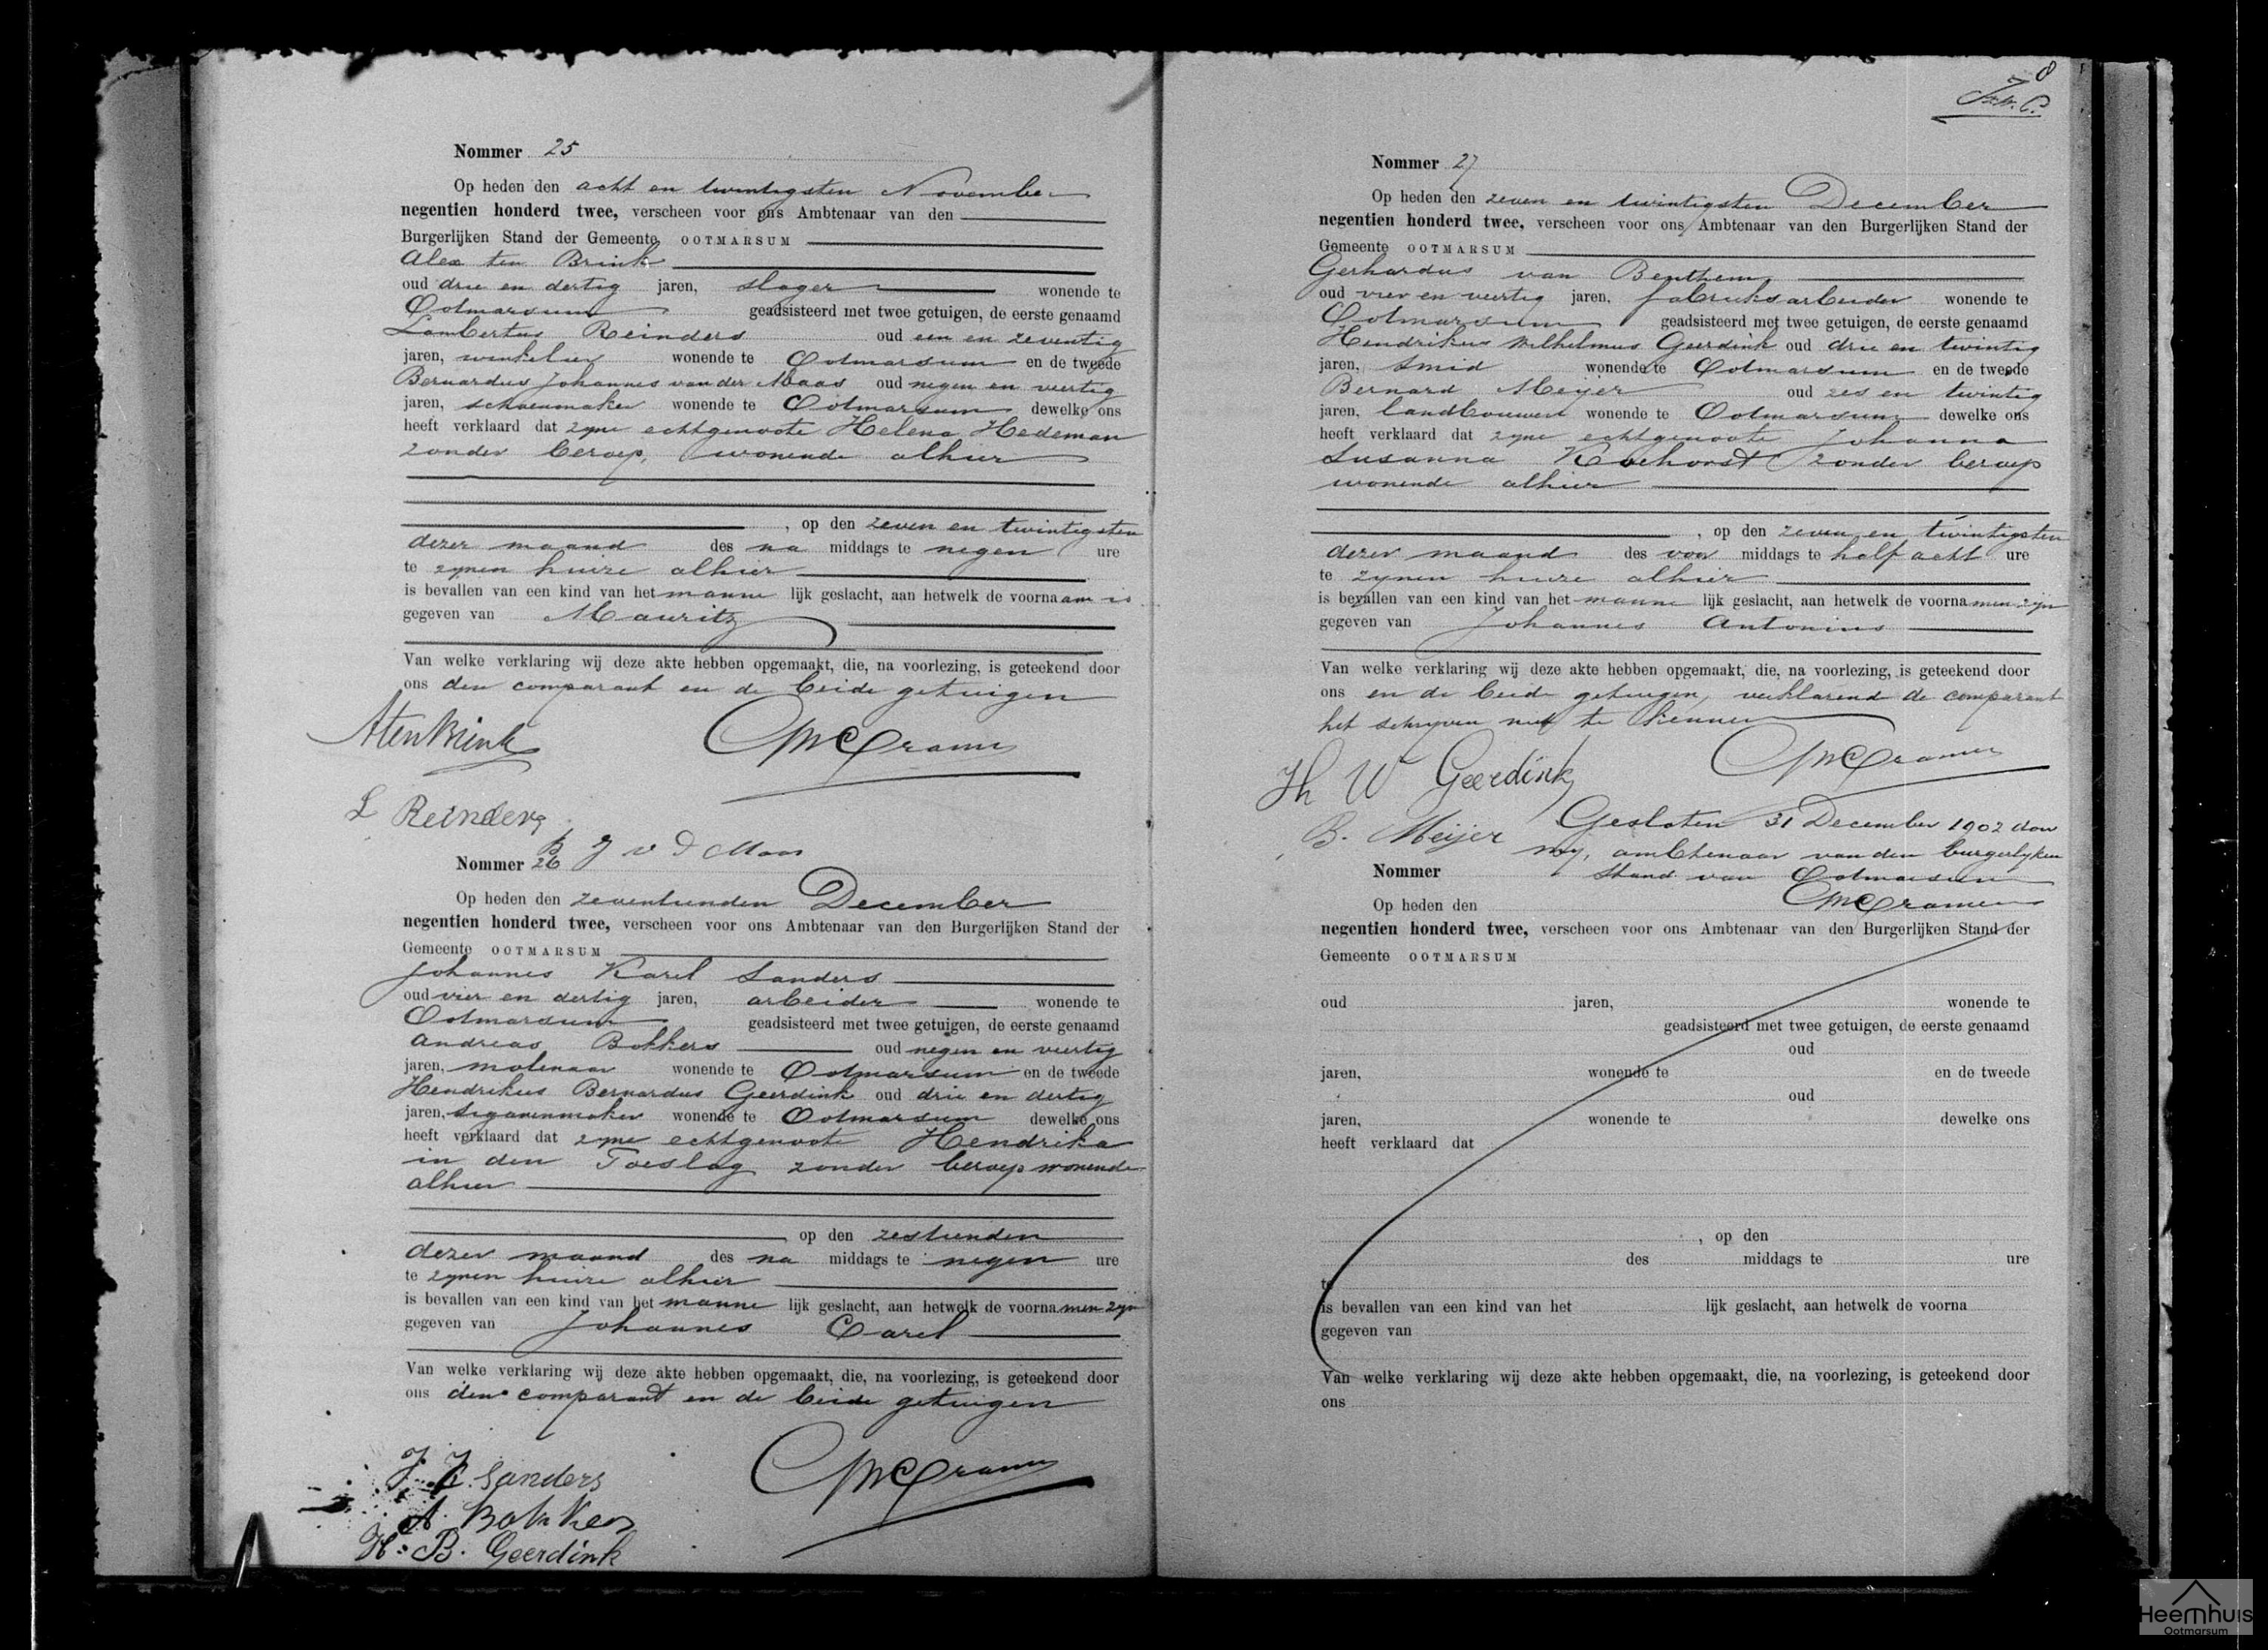 Nommer 25
Op heden den acht en twintigsten November
negentien honderd twee, verscheen voor ons Ambtenaar van den
Burgerlijken Stand der Gemeente OOTMARSUM
Alex ten Brink
oud drie en dertig jaren, slager wonende te
Ootmarsum geadsisteerd met twee getuigen, de eerste genaamd
Lambertus Reinders oud een en zeventig
jaren, winkelier wonende te Ootmarsum en de tweede
Bernardus Johannes van der Maas oud negen en veertig
jaren, schoenmaker wonende te Ootmarsum dewelke ons
heeft verklaard dat zyne echtgenoote Helena Hedeman
zonder beroep, wonende alhier
, op den zeven en twintigsten
dezer maand des na middags te negen ure
te zynen huize alhier
is bevallen van een kind van het manne lijk geslacht, aan hetwelk de voornaam is
gegeven van Mauritz
Van welke verklaring wij deze akte hebben opgemaakt, die, na voorlezing, is geteekend door
ons den comparant en de beide getuigen
AtenBrink
Cramer
L Reinders
B J v d Maas
Nommer 26
Op heden den zeventienden December
negentien honderd twee, verscheen voor ons Ambtenaar van den Burgerlijken Stand der
Gemeente OOTMARSUM
Johannes Karel Sanders
oud vier en dertig jaren, arbeider wonende te
Ootmarsum geadsisteerd met twee getuigen, de eerste genaamd
Andreas Bokkers oud negen en veertig
jaren, molenaar wonende te Ootmarsum en de tweede
Hendrikus Bernardus Geerdink oud drie en dertig
jaren, sigarenmaker wonende te Ootmarsum dewelke ons
heeft verklaard dat zyne echtgenoote Hendrika
in den Toeslag zonder beroep wonende
alhier
op den zestienden
dezer maand des na middags te negen ure
te zynen huize alhier
is bevallen van een kind van het manne lijk geslacht, aan hetwelk de voornamen zyn
gegeven van Johannes Carel
Van welke verklaring wij deze akte hebben opgemaakt, die, na voorlezing, is geteekend door
ons den comparant en de beide getuigen
J. K. Sanders
Cramer
A. Bokkers
H. B. Geerdink
8
Nommer 27
Op heden den zeven en twintigsten December
negentien honderd twee, verscheen voor ons Ambtenaar van den Burgerlijken Stand der
Gemeente OOTMARSUM
Gerhardus van Benthem
oud vier en veertig jaren, fabrieksarbeider wonende te
Ootmarsum geadsisteerd met twee getuigen, de eerste genaamd
Hendrikus Wilhelmus Geerdink oud drie en twintig
jaren, smid wonende te Ootmarsum en de tweede
Bernard Meijer oud zes en twintig
jaren, landbouwer wonende te Ootmarsum dewelke ons
heeft verklaard dat zyne echtgenoote Johanna
Susanna Koehorst zonder beroep
wonende alhier
, op den zeven en twintigsten
dezer maand des voor middags te half acht ure
te zynen huize alhier
is bevallen van een kind van het manne lijk geslacht, aan hetwelk de voornamen zijn
gegeven van Johannes Antonius
Van welke verklaring wij deze akte hebben opgemaakt, die, na voorlezing, is geteekend door
ons en de beide getuigen, verklarend de comparant
het schryven niet te kennen
Cramer
Hh W Geerdink
B. Meijer
Gesloten 31 December 1902 door
my, ambtenaar van den burgerlyken
stand van Ootmarsum
Cramer
Nommer
Op heden den
negentien honderd twee, verscheen voor ons Ambtenaar van den Burgerlijken Stand der
Gemeente OOTMARSUM
oud jaren, wonende te
geadsisteerd met twee getuigen, de eerste genaamd
oud
jaren, wonende te en de tweede
oud
jaren, wonende te dewelke ons
heeft verklaard dat
, op den
des middags te ure
te
is bevallen van een kind van het lijk geslacht, aan hetwelk de voorna
gegeven van
Van welke verklaring wij deze akte hebben opgemaakt, die, na voorlezing, is geteekend door
ons
Heemhuis
Ootmarsum